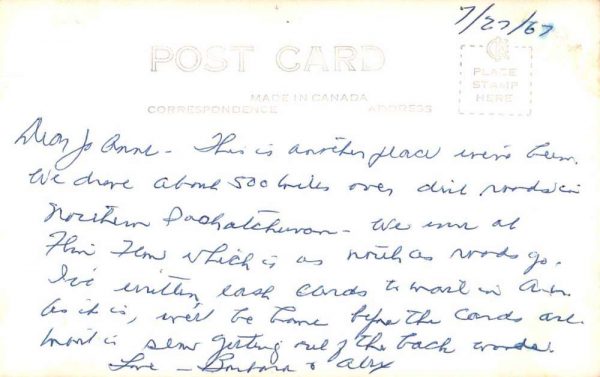 7/27/67
POST CARD
PLACE
STAMP
HERE
MADE IN CANADA
CORRESPONDENCE ADDRESS
Dear Jo Anne - This is another place we've been.
We drove about 500 miles over dirt roads in
Northern Saskatchewan - We were at
Flin Flon which is as north as roads go.
I've written each cards to mail in
As it is, we'll be home before the cards are.
Mail is slow getting out of the back woods.
Love - Barbara & Alex